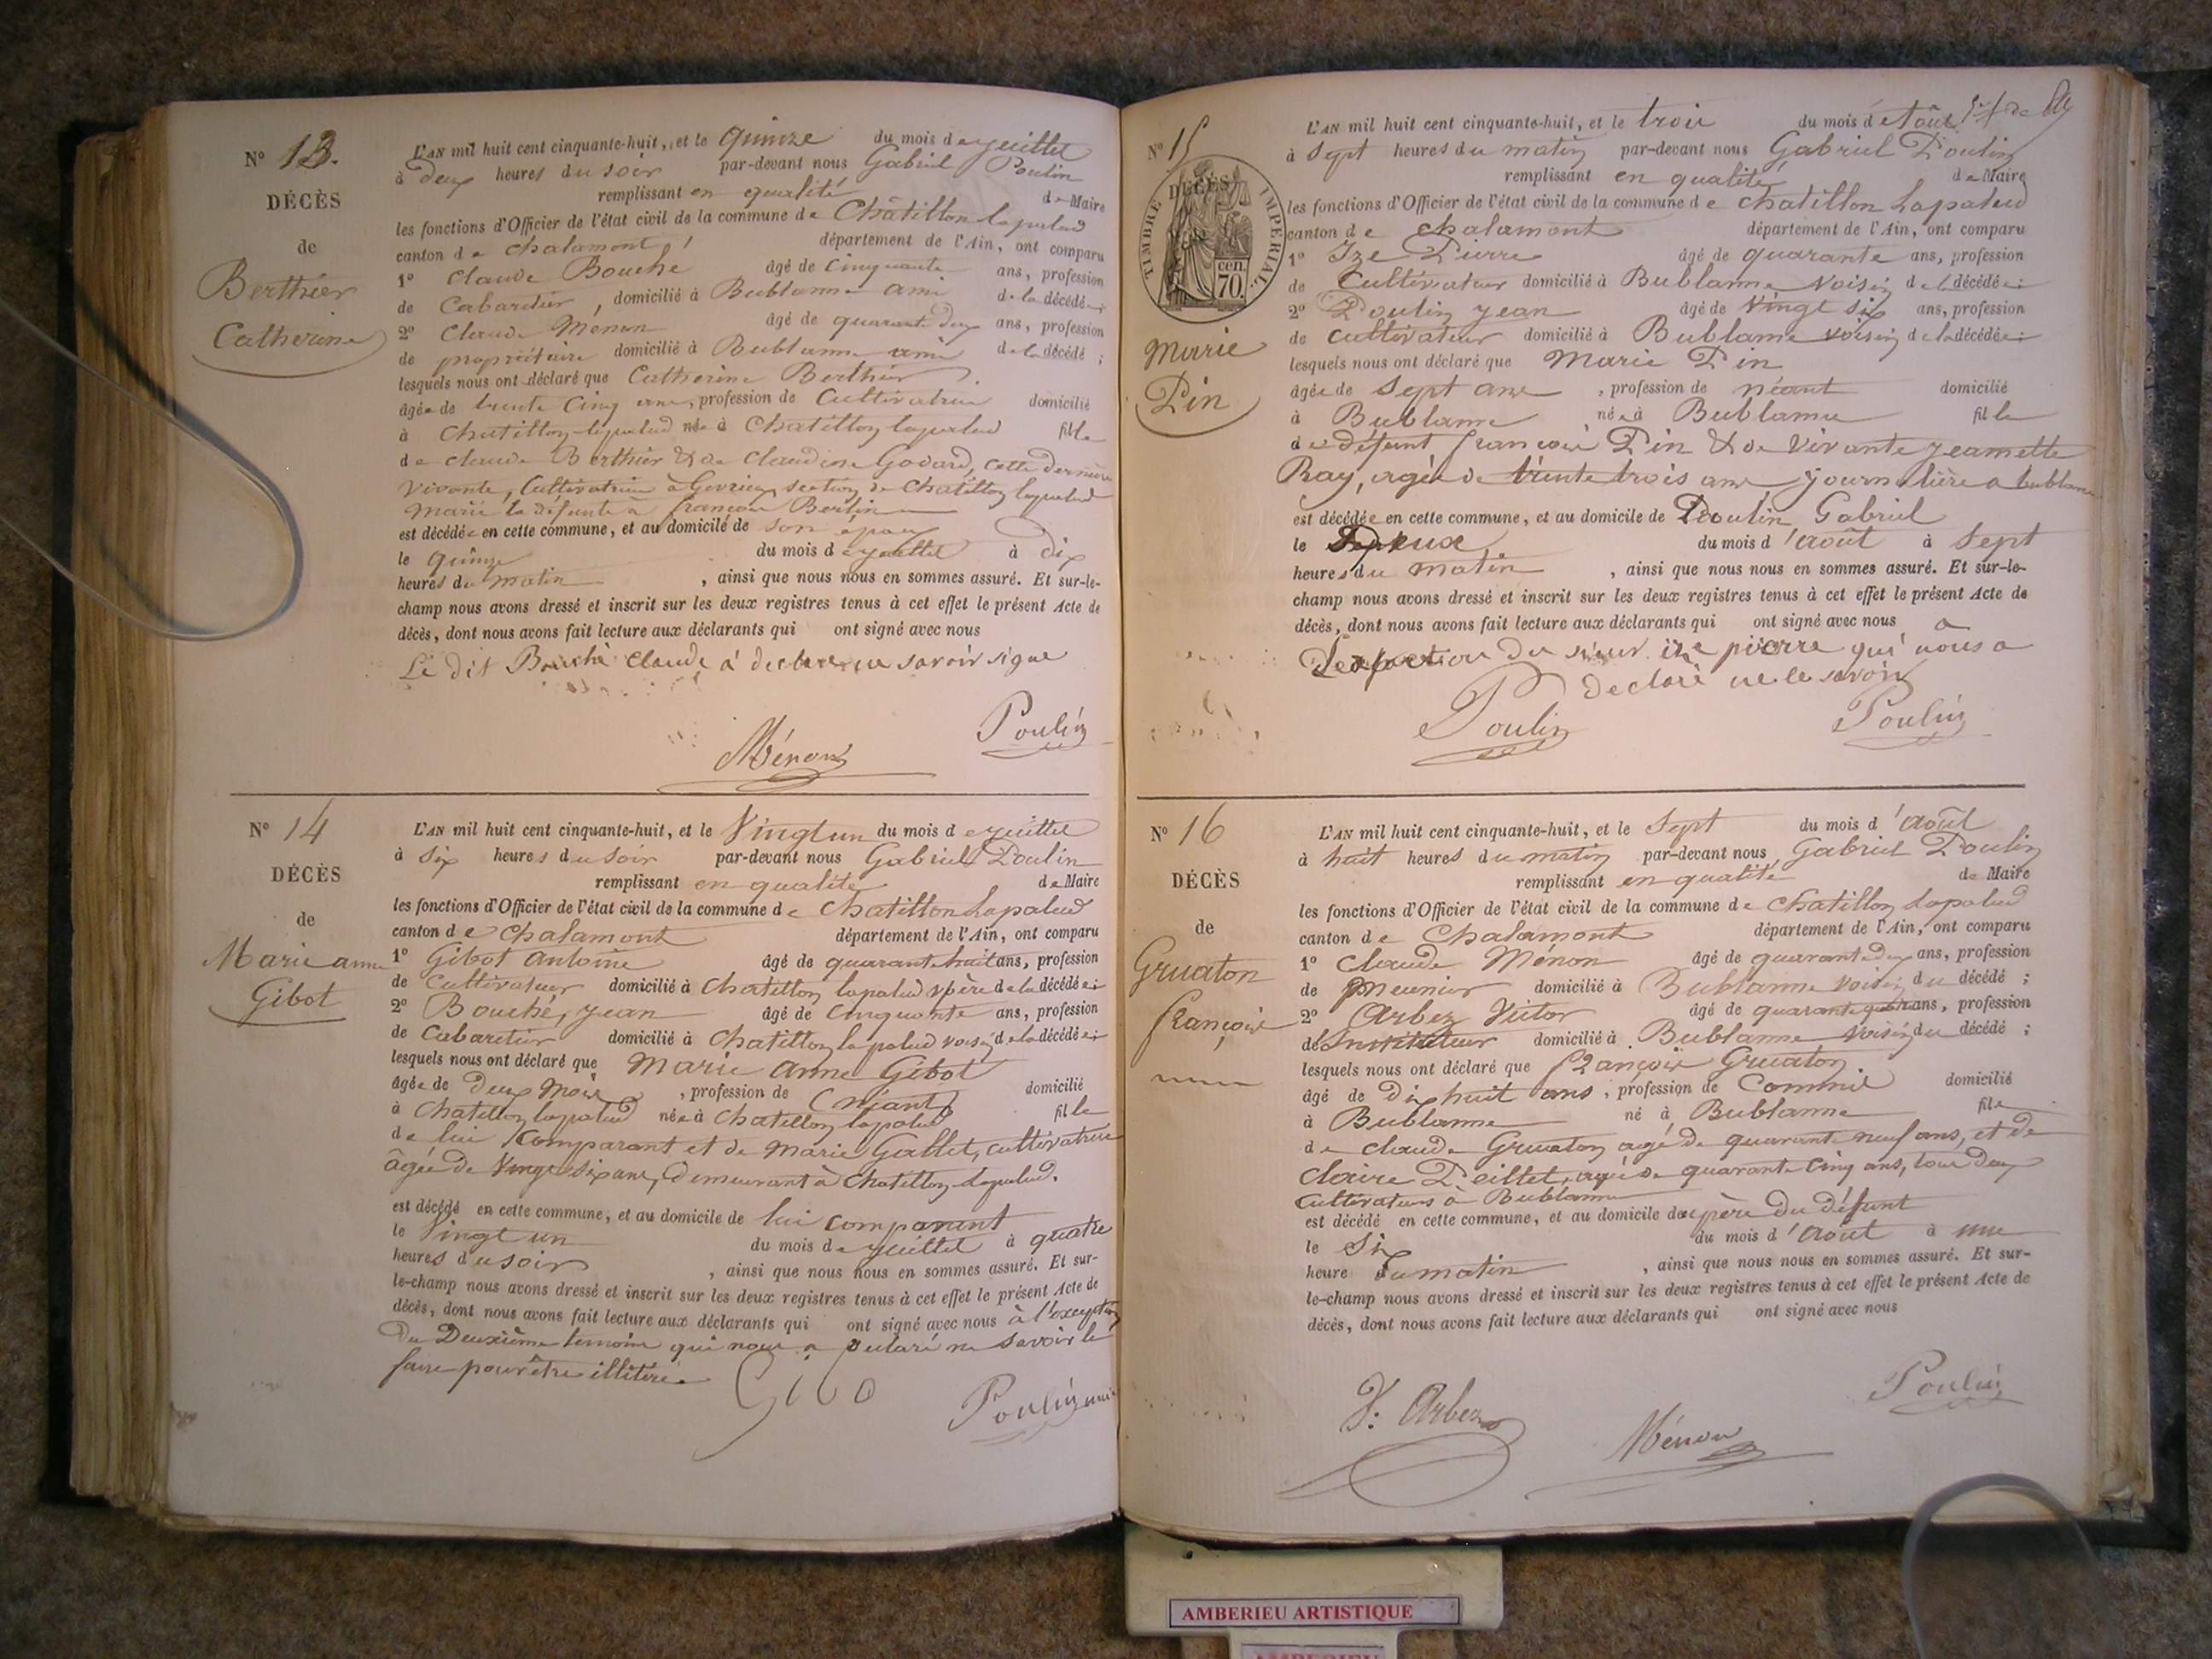 N° 13.
DÉCÈS
de
Berthier
Catherine
L'AN mil huit cent cinquante-huit, et le quinze du mois de juillet
à deux heures du soir par-devant nous Gabriel Poulin
remplissant en qualité de Maire
les fonctions d'Officier de l'état civil de la commune de Châtillon lapalud
canton de chalamont département de l'Ain, ont comparu
1° Claude Bouché âgé de cinquante ans, profession
de Cabaretier, domicilié à Bublanne ami de la décédée
2° Claude Ménon âgé de quarante deux ans, profession
de propriétaire domicilié à Bublanne ami de la décédé ;
lesquels nous ont déclaré que Catherine Berthier
âgée de trente cinq ans, profession de Cultivatrice domicilié
à Chatillon-lapalud née à Chatillon lapalud fille
de claude Berthier & de Claudine Godard, cette dernière
vivante, Cultivatrice à section de Chatillon lapalud
marié la défunte à françois Berlin
est décédée en cette commune, et au domicile de son époux
le quinze du mois de juillet à dix
heures du matin, ainsi que nous nous en sommes assuré. Et sur-le-
champ nous avons dressé et inscrit sur les deux registres tenus à cet effet le présent Acte de
décès, dont nous avons fait lecture aux déclarants qui ont signé avec nous
Le dit Bouché Claude a déclaré ne savoir signe
Poulin
Ménon
N° 14
DÉCÈS
de
Marie anne
Gibot
L'AN mil huit cent cinquante-huit, et le Vingt un du mois de juillet
à six heures du soir par-devant nous Gabriel Poulin
remplissant en qualité de Maire
les fonctions d'Officier de l'état civil de la commune de Chatillon Lapalud
canton de Chalamont département de l'Ain, ont comparu
1° Gibot Antoine âgé de quarante huit ans, profession
de Cultivateur domicilié à Chatillon lapalud père de la décédée ;
2° Bouché, jean âgé de Cinquante ans, profession
de Cabaretier domicilié à Chatillon la palud voisin de la décédée ;
lesquels nous ont déclaré que Marie Anne Gibot
âgée de deux mois, profession de (néant) domicilié
à Chatillon lapalud née à Chatillon lapalud fille
de lui Comparant et de Marie Gallet, cultivatrice
âgée de Vingt six ans, demeurant à Chatillon-lapalud.
est décédé en cette commune, et au domicile de lui comparant
le Vingt un du mois de juillet à quatre
heures du soir, ainsi que nous nous en sommes assuré. Et sur-
le-champ nous avons dressé et inscrit sur les deux registres tenus à cet effet le présent Acte de
décès, dont nous avons fait lecture aux déclarants qui ont signé avec nous à l'exception
du Deuxième temoin qui nous a déclaré ne savoir le
faire pour être illétéré.
Poulin
N° 15
TIMBRE IMPERIAL
DÉCÈS
70. cen.
Marie
Pin
L'AN mil huit cent cinquante-huit, et le trois du mois d'Aout
à Sept heures du matin par-devant nous Gabriel Poulin
remplissant en qualité de Maire
les fonctions d'Officier de l'état civil de la commune de Chatillon Lapalud
canton de Chalamont département de l'Ain, ont comparu
1° Ize Pierre âgé de quarante ans, profession
de Cultivateur domicilié à Bublanne voisin de la décédée ;
2° Poulin jean âgé de Vingt six ans, profession
de Cultivateur domicilié à Bublanne voisin de la décédée ;
lesquels nous ont déclaré que Marie Pin
âgée de Sept ans, profession de néant domicilié
à Bublanne née à Bublanne fille
de défunt françois Pin & de vivante jeamette
Ray, agée de trente trois ans journalière a bublane
est décédée en cette commune, et au domicile de Poulin Gabriel
le du mois d'aout à Sept
heures du matin, ainsi que nous nous en sommes assuré. Et sur-le-
champ nous avons dressé et inscrit sur les deux registres tenus à cet effet le présent Acte de
décès, dont nous avons fait lecture aux déclarants qui ont signé avec nous a
du sieur ize pierre qui nous a
declaré ne le savoir
Poulin Poulin
N° 16
DÉCÈS
de
Gruaton
françois
L'AN mil huit cent cinquante-huit, et le Sept du mois d'Aout
à huit heures du matin par-devant nous Gabriel Poulin
remplissant en qualité de Maire
les fonctions d'Officier de l'état civil de la commune de Chatillon Lapalud
canton de Chalamont département de l'Ain, ont comparu
1° Claude Ménon âgé de quarante deux ans, profession
de meunier domicilié à Bublanne voisin du décédé ;
2° Arbez Victor âgé de ans, profession
de Instituteur domicilié à Bublanne voisin du décédé ;
lesquels nous ont déclaré que François Gruaton
âgé de dix huit ans, profession de Commis domicilié
à Bublanne né à Bublanne fils
de claude Gruaton agé de quarante neuf ans, et de
Claire Peillet, agée de quarante cinq ans, tous deux
Cultivateurs à Bublanne
est décédé en cette commune, et au domicile du père du défunt
le Six du mois d'Aout à une
heure du matin, ainsi que nous nous en sommes assuré. Et sur-
le-champ nous avons dressé et inscrit sur les deux registres tenus à cet effet le présent Acte de
décès, dont nous avons fait lecture aux déclarants qui ont signé avec nous
Poulin
V. Arbez
Ménon
AMBERIEU ARTISTIQUE